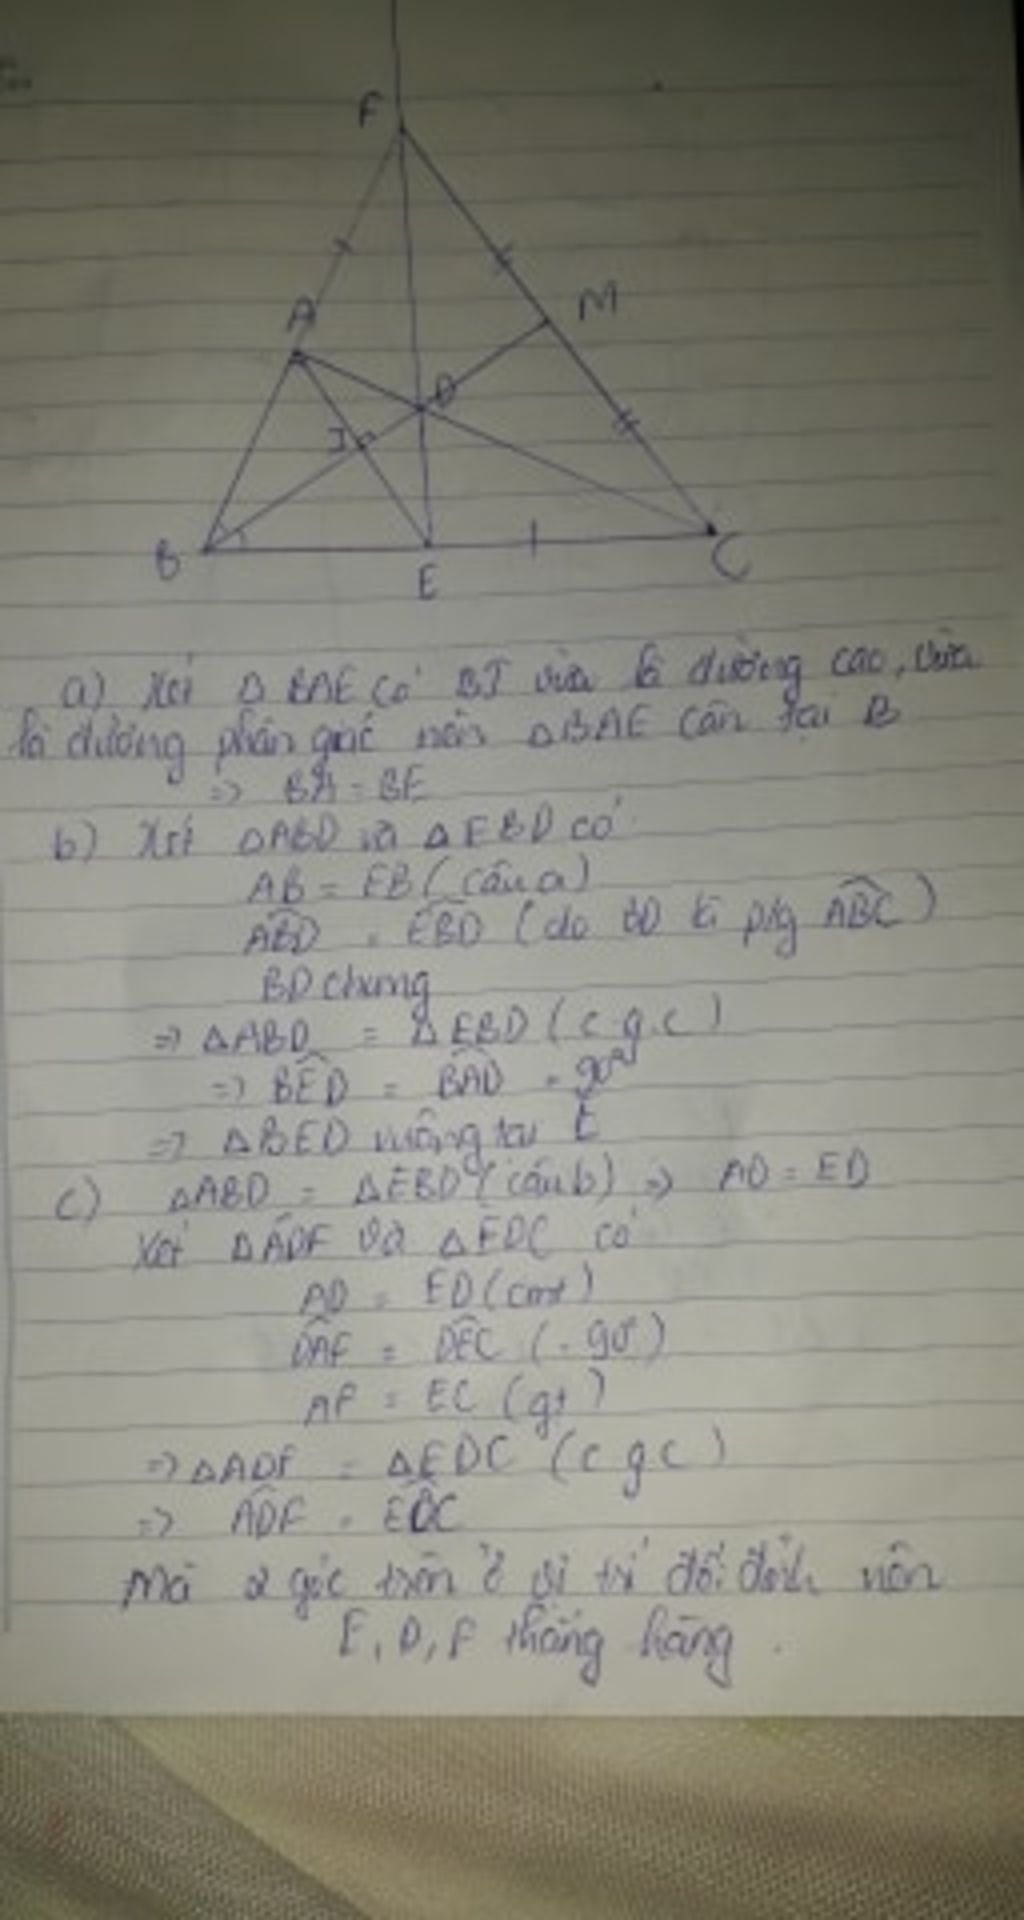 F
A
M
D
I
B
E
C
a) Xét Δ BAE có BI vừa là đường cao, vừa
là đường phân giác nên ΔBAE cân tại B
=> BA = BE
b) Xét ΔABD và ΔEBD có
AB = EB (câu a)
ABD = EBD (do BD là p/g ABC)
BD chung
=> ΔABD = ΔEBD (c.g.c)
=> BED = BAD = 90°
=> ΔBED vuông tại E
c) ΔABD = ΔEBD (câu b) => AD = ED
Xét ΔADF và ΔEDC có
AD = ED (cmt)
DAF = DEC (= 90°)
AF = EC (gt)
=> ΔADF = ΔEDC (c g c)
=> ADF = EDC
Mà 2 góc trên ở vị trí đối đỉnh nên
E, D, F thẳng hàng.